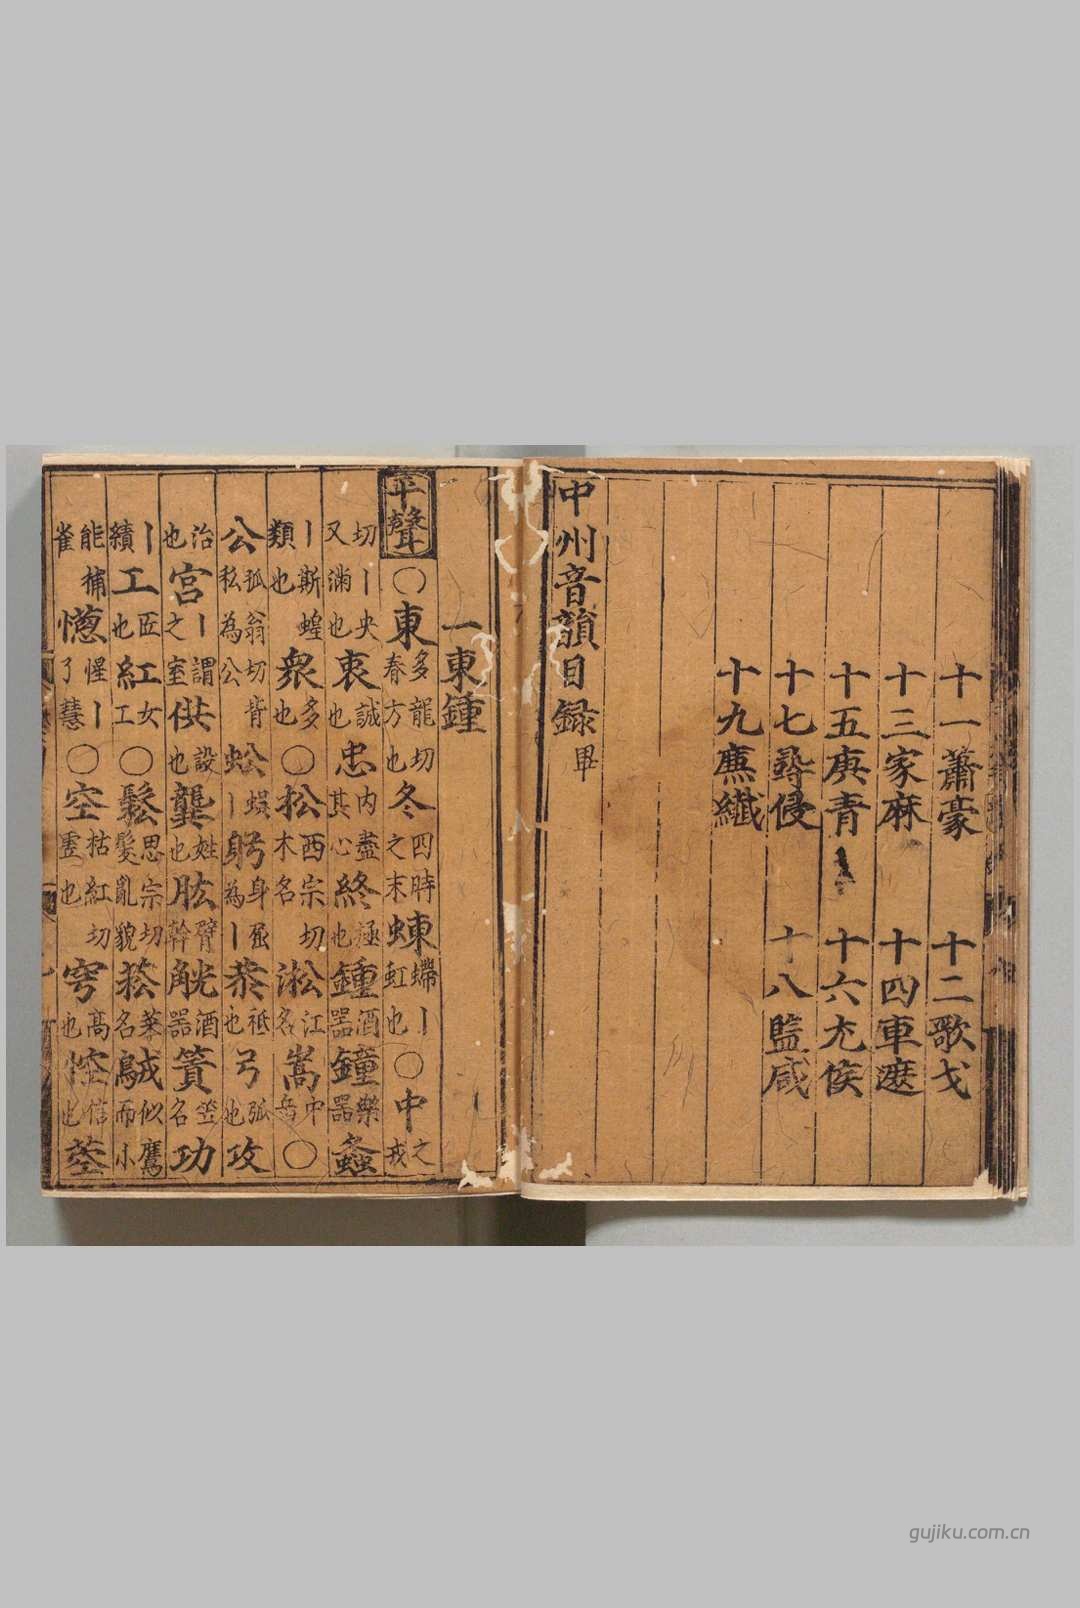 十一蕭豪 十二歌戈
十三家麻 十四車遮
十五庚青 十六尤侯
十七尋侵 十八監咸
十九廉纖
中州音韻目録畢
一東鍾
平聲○東多龍切春方也冬四時之末蝀螮丨虹也○中之戎
切丨央又滿也衷誠也忠內盡其心終極也鍾酒器鐘樂器螽
丨斯蝗類也衆多也○松西宗切木名淞江名嵩中岳○
公孤翁切背私為公蚣蜈丨躬身屈為丨恭祗也弓弧也攻
治也宮丨謂之室供設也龔姓也肱臂幹觥酒器篢笠名功
丨績工匠也紅女工○鬆思宗切髮亂貌菘菜名䳋似鷹而小
能捕雀憁惺丨了慧○空枯紅切虛也穹高也悾信也
gujiku.com.cn